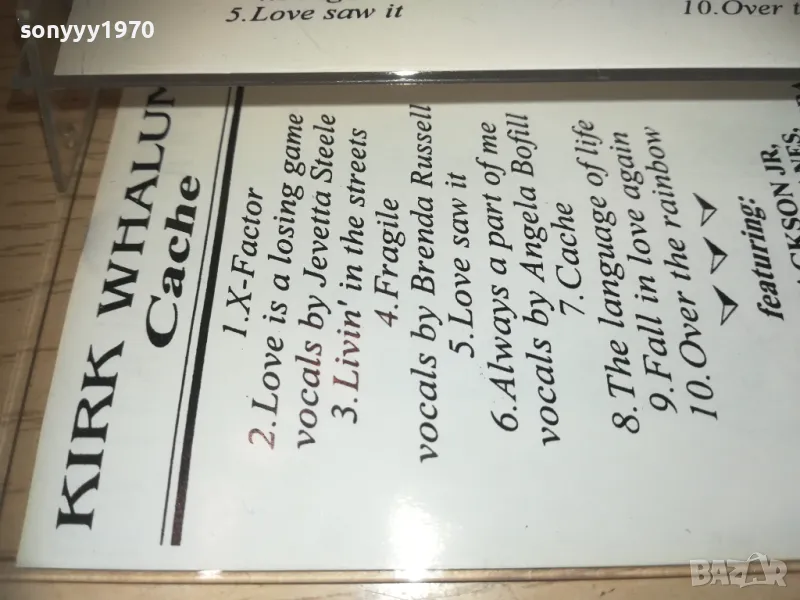 sonyyy1970
5.Love saw it
10.Over
KIRK WHALUM
Cache
1.X-Factor
2.Love is a losing game
vocals by Jevetta Steele
3.Livin' in the streets
4.Fragile
vocals by Brenda Russell
5.Love saw it
6.Always a part of me
vocals by Angela Bofill
7.Cache
8.The language of life
9.Fall in love again
10.Over the rainbow
featuring:
CKSON JR,
BAZAR